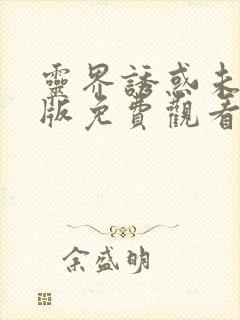 靈界誘惑未
版免費觀看
余盛明